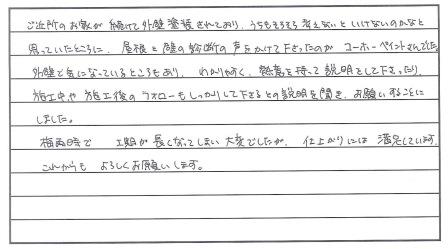 ご近所のお家が続けて外壁塗装されており、うちもそろそろ考えないといけないのかなと
思っていたところに、屋根と壁の診断の声をかけて下さったのがユーホーペイントさんでした。
外壁で気になっているところもあり、わかりやすく、熱意を持って説明をして下さったり、
施工中や施工後のフォローもしっかりして下さるとの説明を聞き、お願いすることに
しました。
梅雨時で 工期が長くなってしまい大変でしたが、仕上がりには満足しています。
これからも よろしくお願いします。